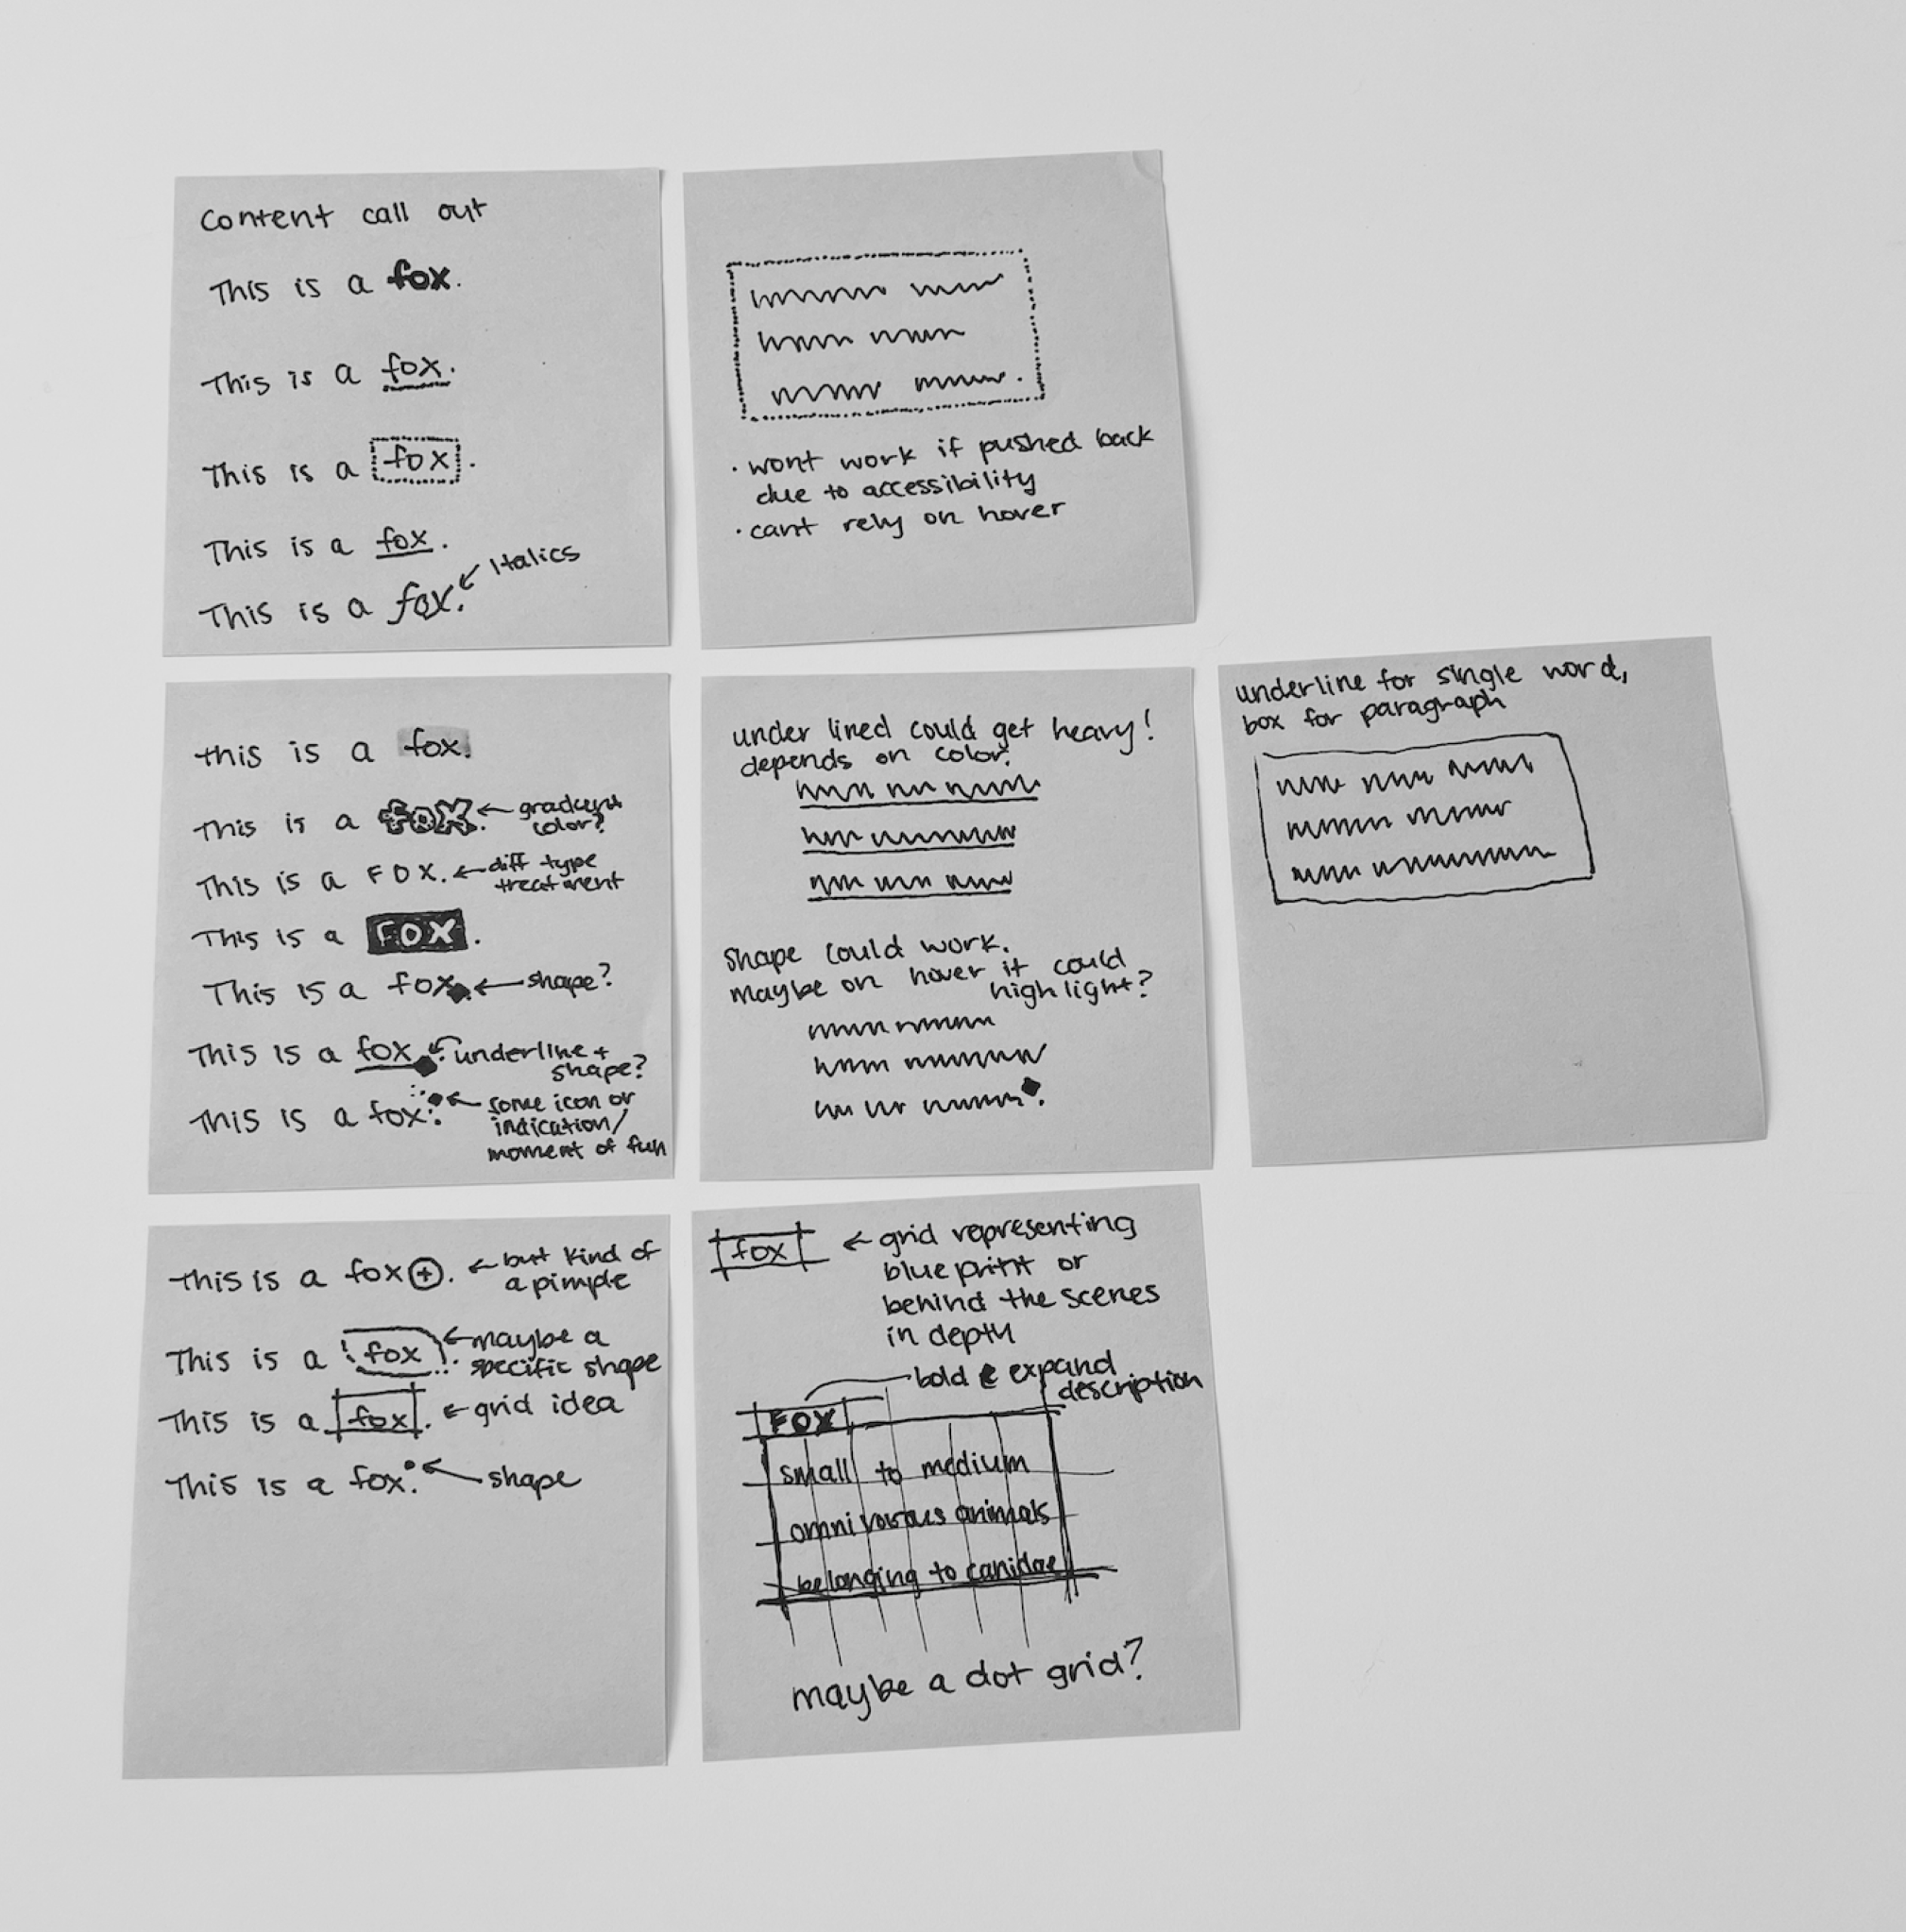 content call out
This is a fox.
This is a fox.
This is a fox.
This is a fox.
Italics
This is a fox.
· wont work if pushed back
due to accessibility
· cant rely on hover
this is a fox.
This is a fox.
gradient
color?
This is a FOX.
diff type
treatment
This is a FOX.
This is a fox.
shape?
This is a fox.
underline +
shape?
This is a fox.
some icon or
indication/
moment of fun
under lined could get heavy!
depends on color.
shape could work.
maybe on hover it could
highlight?
underline for single word,
box for paragraph
This is a fox+.
but kind of
a pimple
This is a fox.
maybe a
specific shape
This is a fox.
grid idea
This is a fox.
shape
fox
grid representing
blue print or
behind the scenes
in depth
bold & expand
description
FOX
small to medium
omnivorous animals
belonging to canidae
maybe a dot grid?